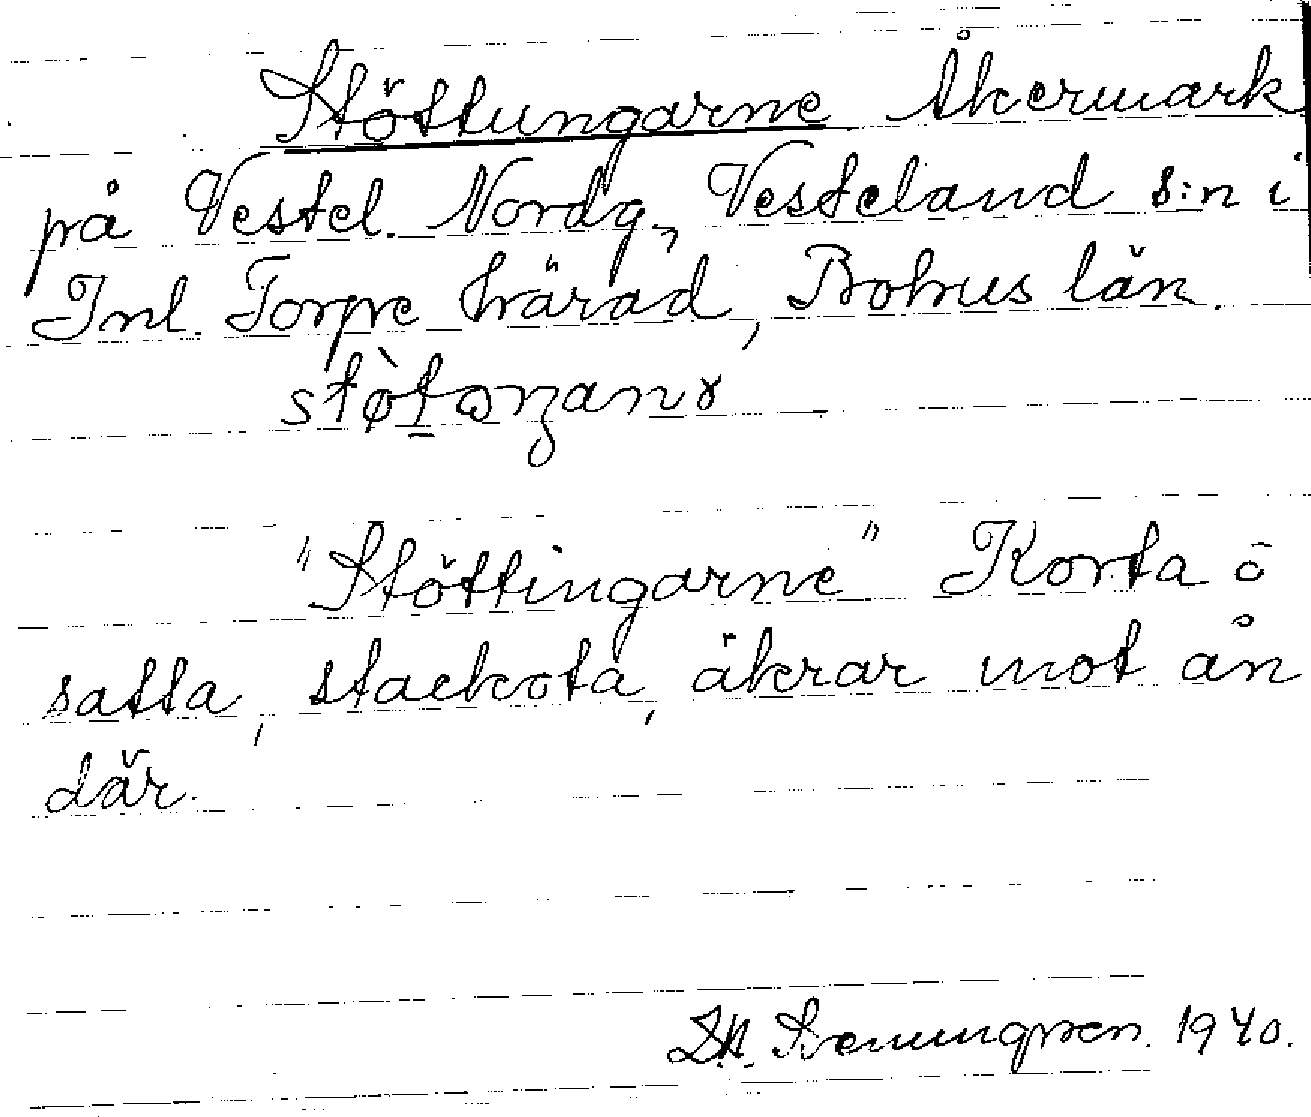 Stöttungarne Åkermark
på Vestel. Nordg., Vesteland s:n i
Inl. Torpe härad, Bohus län.
stø̀tɷŋanɤ
"Stöttingarne" Korta ö
satta, stackota, åkrar mot ån
där.
1940.